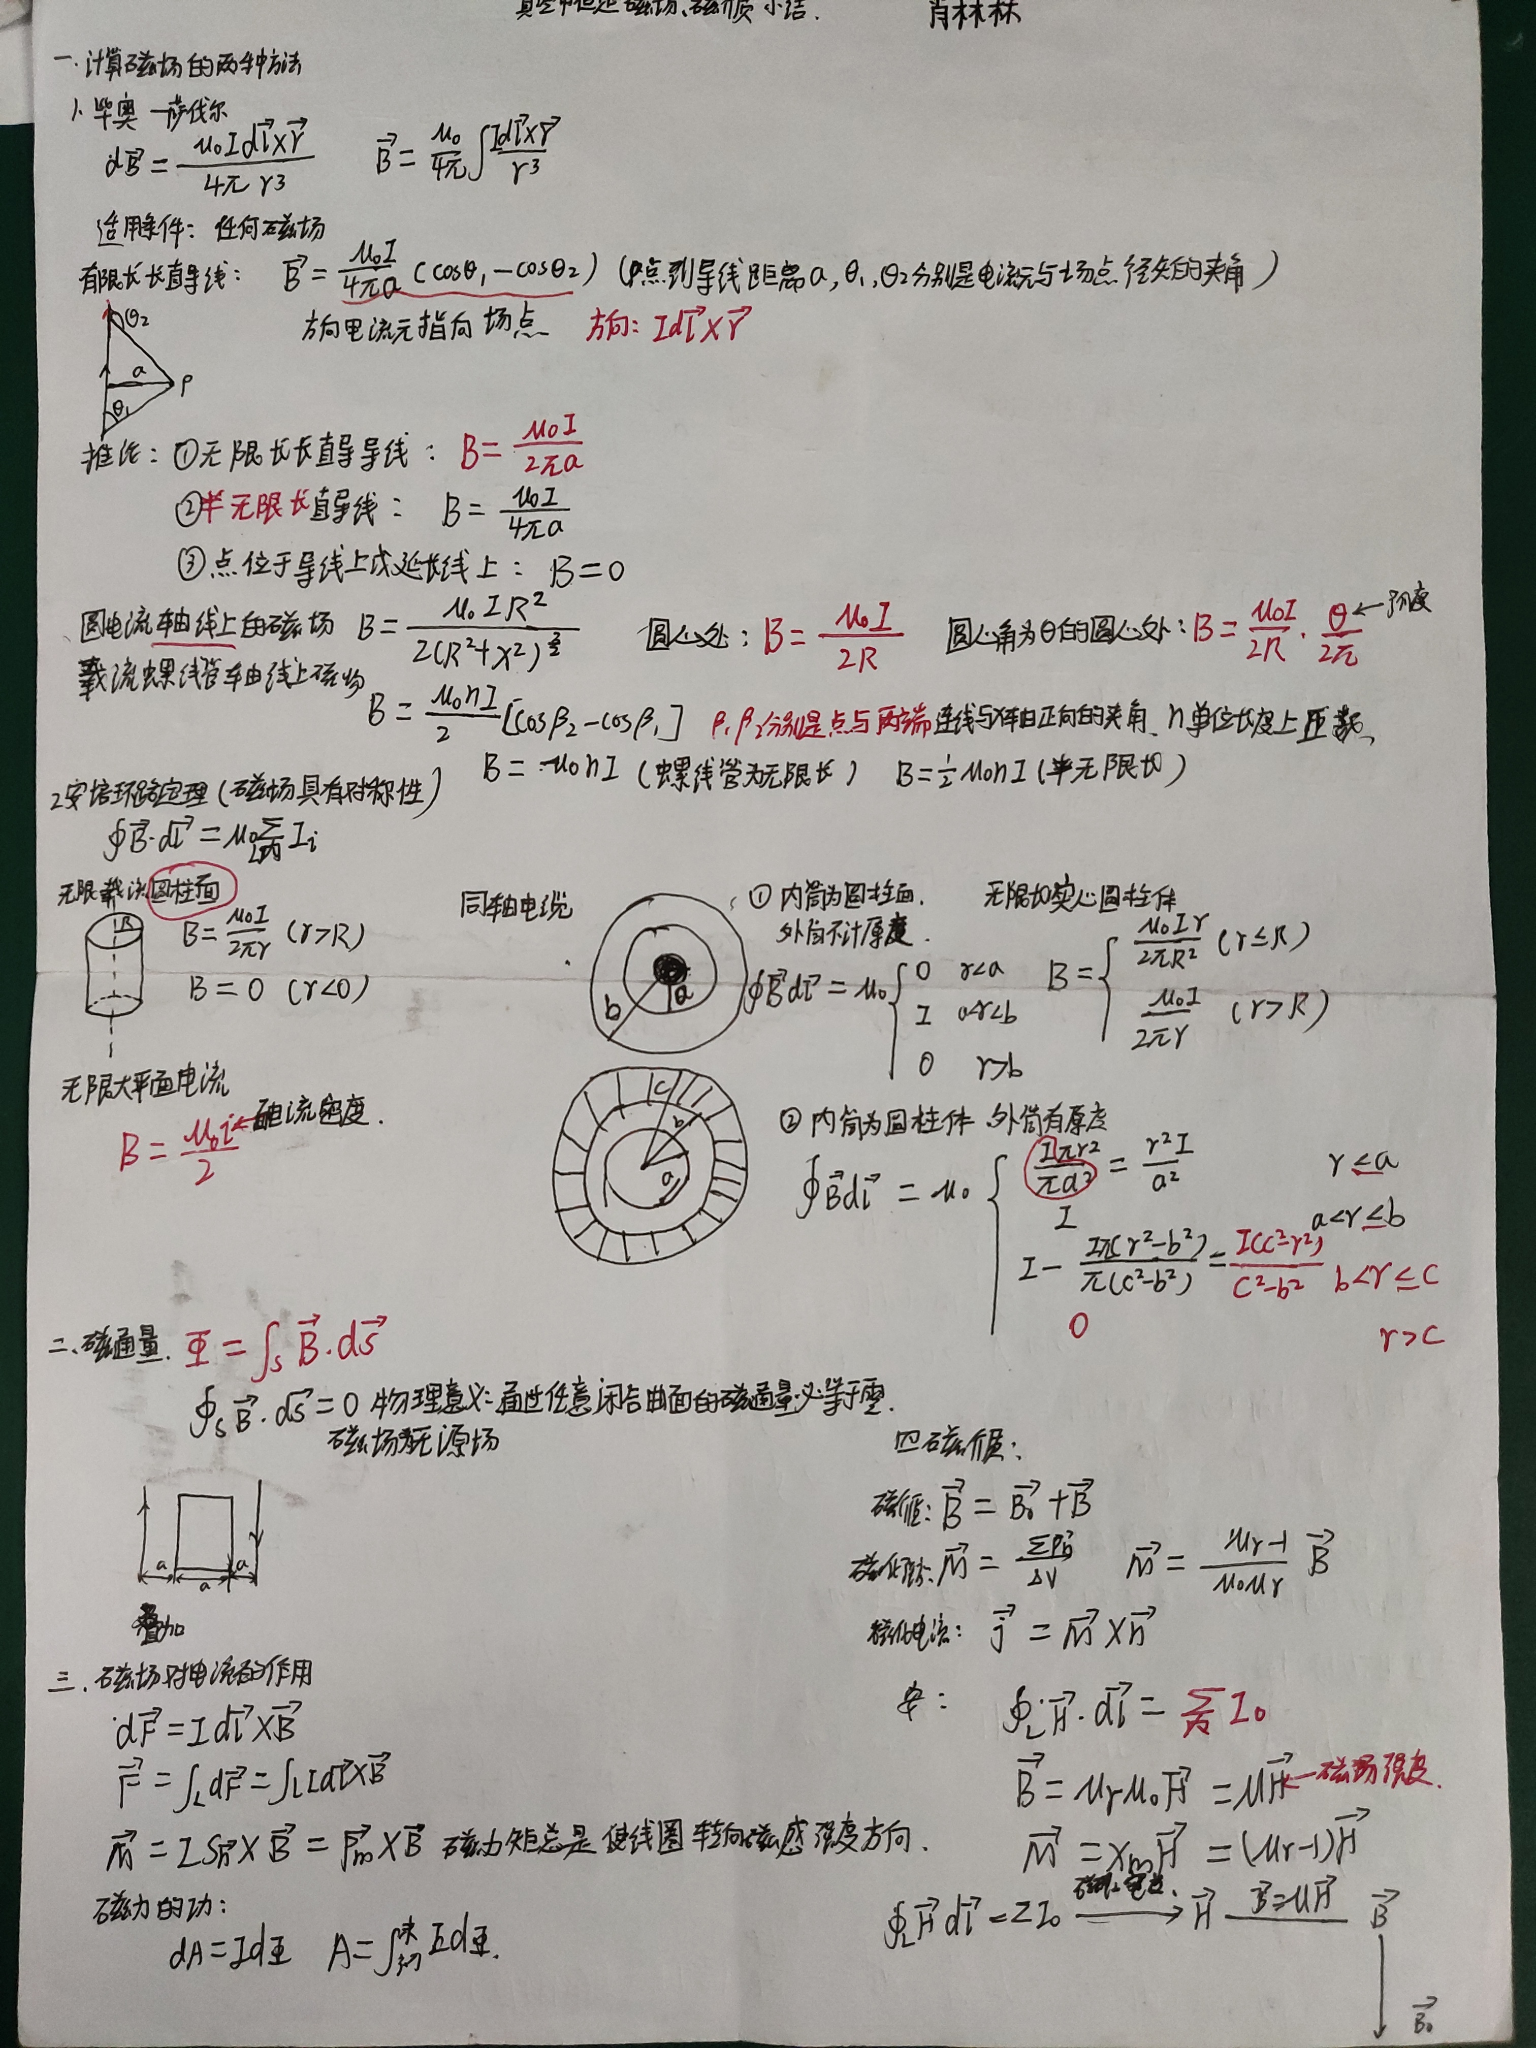 真空中恒定磁场、磁介质小结. 肖林林
一.计算磁场的两种方法
1.毕奥—萨伐尔
dB⃗ = μ₀Idl⃗×r⃗ / 4πr³  B⃗ = μ₀/4π ∫ Idl⃗×r⃗ / r³
适用条件：任何磁场
有限长长直导线： B⃗ = μ₀I/4πa (cosθ₁-cosθ₂) (P点到导线距离a,θ₁,θ₂分别是电流元与场点径矢的夹角)
方向电流元指向场点 方向：Idl⃗×r⃗
θ₂
a P
θ₁
推论：①无限长长直导导线： B = μ₀I/2πa
②半无限长直导线： B = μ₀I/4πa
③点位于导线上或延长线上： B=0
圆电流轴线上的磁场 B = μ₀IR² / 2(R²+x²)^(3/2) 圆心处：B = μ₀I/2R 圆心角为θ的圆心处：B = μ₀I/2R · θ/2π ←弧度
载流螺线管轴线上磁场
B = μ₀nI/2 [cosβ₂-cosβ₁] β₁β₂分别是点与两端连线与x轴正向的夹角、n单位长度上匝数、
B = μ₀nI (螺线管为无限长) B=½μ₀nI(半无限长)
2安培环路定理(磁场具有对称性)
∮B⃗·dl⃗ = μ₀∑(L内) Iᵢ
无限载流圆柱面
R
B = μ₀I/2πr (r>R)
B = 0 (r<0)
同轴电缆
b a
①内筒为圆柱面.
外筒不计厚度.
∮B⃗dl⃗ = μ₀ { 0 r<a
I a<r<b
0 r>b
无限长实心圆柱体
B = { μ₀Ir/2πR² (r≤R)
μ₀I/2πr (r>R)
无限大平面电流
B = μ₀i/2 ←电流密度.
c b a
②内筒为圆柱体 外筒有厚度
∮B⃗dl⃗ = μ₀ { Iπr²/πa² = r²I/a² r≤a
I a<r≤b
I - Iπ(r²-b²)/π(c²-b²) = I(c²-r²)/c²-b² b<r≤c
0 r>c
二、磁通量. Φ = ∫ₛ B⃗·ds⃗
∮ₛB⃗·ds⃗=0 物理意义：通过任意闭合曲面的磁通量必等于零.
磁场为无源场
a a a
叠加
三.磁场对电流的作用
dF⃗ = Idl⃗×B⃗
F⃗ = ∫_L dF⃗ = ∫_L Idl⃗×B⃗
M⃗ = ISn⃗×B⃗ = P⃗m×B⃗ 磁力矩总是使线圈转向磁感强度方向.
磁力的功：
dA=IdΦ A=∫初末 IdΦ.
四磁介质：
磁介质：B⃗ = B⃗₀+B⃗
M⃗ = ∑P⃗m/ΔV M⃗ = μr-1/μ₀μr B⃗
磁化电流： j⃗ = M⃗×n⃗
安： ∮_L H⃗·dl⃗ = ∑内 I₀
B⃗ = μrμ₀H⃗ = μH⃗ ←磁场强度.
M⃗ = χmH⃗ = (μr-1)H⃗
∮_L H⃗dl⃗ = ΣI₀ → H⃗ B⃗=μH⃗ B⃗
B⃗₀